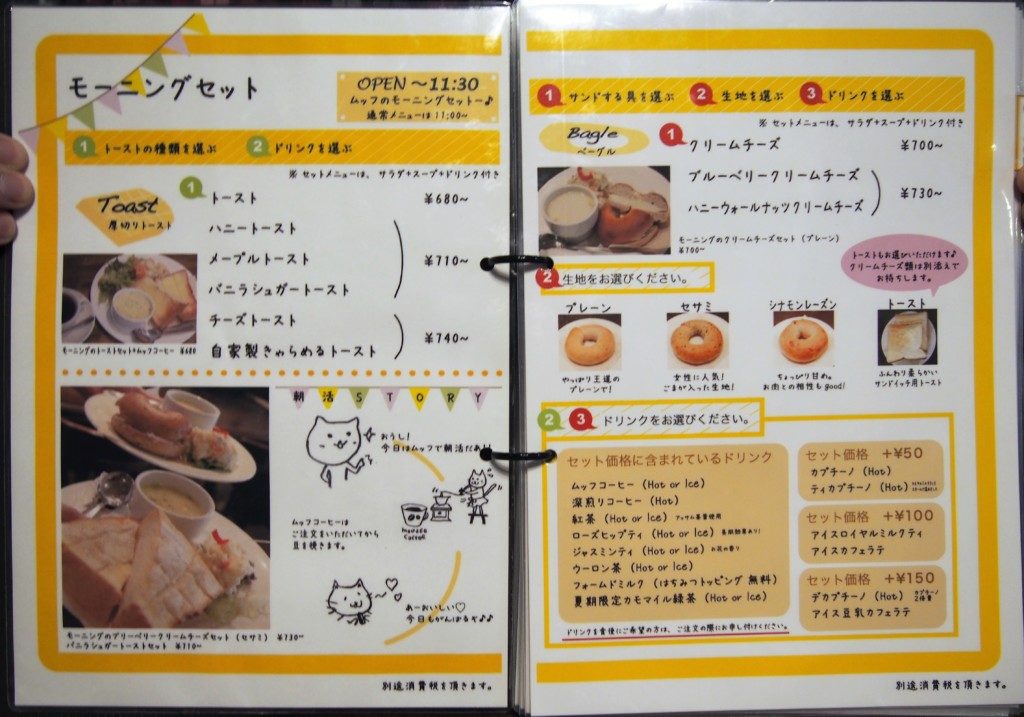 モーニングセット
OPEN ～11:30
ムッフのモーニングセットー♪
通常メニューは 11:00～
1 トーストの種類を選ぶ 2 ドリンクを選ぶ
※ セットメニューは、 サラダ+スープ+ドリンク付き
Toast
厚切りトースト
1 トースト ¥680～
ハニートースト
メープルトースト ¥710～
バニラシュガートースト
チーズトースト
自家製きゃらめるトースト ¥740～
モーニングのトーストセット+ムッフコーヒー ¥680
朝活STORY
おうし!
今日はムッフで朝活だあ!
ムッフコーヒーは
ご注文をいただいてから
豆を挽きます。
あーおいしい♡
今日もがんばるぞ♪♪
モーニングのブリーベリークリームチーズセット (セサミ) ¥730～
バニラシュガートーストセット ¥710～
別途消費税を頂きます。
1 サンドする具を選ぶ 2 生地を選ぶ 3 ドリンクを選ぶ
※ セットメニューは、 サラダ+スープ+ドリンク付き
Bagle
ベーグル
1 クリームチーズ ¥700～
ブルーベリークリームチーズ
ハニーウォールナッツクリームチーズ ¥730～
モーニングのクリームチーズセット (プレーン)
¥700～
トーストもお選びいただけます♪
クリームチーズ類は別添えで
お持ちします。
2 生地をお選びください。
プレーン
やっぱり王道の
プレーンで!
セサミ
女性に人気!
ごまが入った生地!
シナモンレーズン
ちょっぴり甘め。
お肉との相性もgood!
トースト
ふんわり柔らかい
サンドイッチ用トースト
2 3 ドリンクをお選びください。
セット価格に含まれているドリンク
ムッフコーヒー (Hot or Ice)
深煎りコーヒー (Hot)
紅茶 (Hot or Ice) アッサム茶葉使用
ローズヒップティ (Hot or Ice) 美肌効果あり!
ジャスミンティ (Hot or Ice) お花の香り
ウーロン茶 (Hot or Ice)
フォームドミルク (はちみつトッピング 無料)
夏期限定カモマイル緑茶 (Hot or Ice)
セット価格 +¥50
カプチーノ (Hot)
ティカプチーノ (Hot)
セット価格 +¥100
アイスロイヤルミルクティ
アイスカフェラテ
セット価格 +¥150
デカプチーノ (Hot) カプチーノ
2倍量
アイス豆乳カフェラテ
ドリンクを食後にご希望の方は、ご注文の際にお申し付けください。
別途消費税を頂きます。